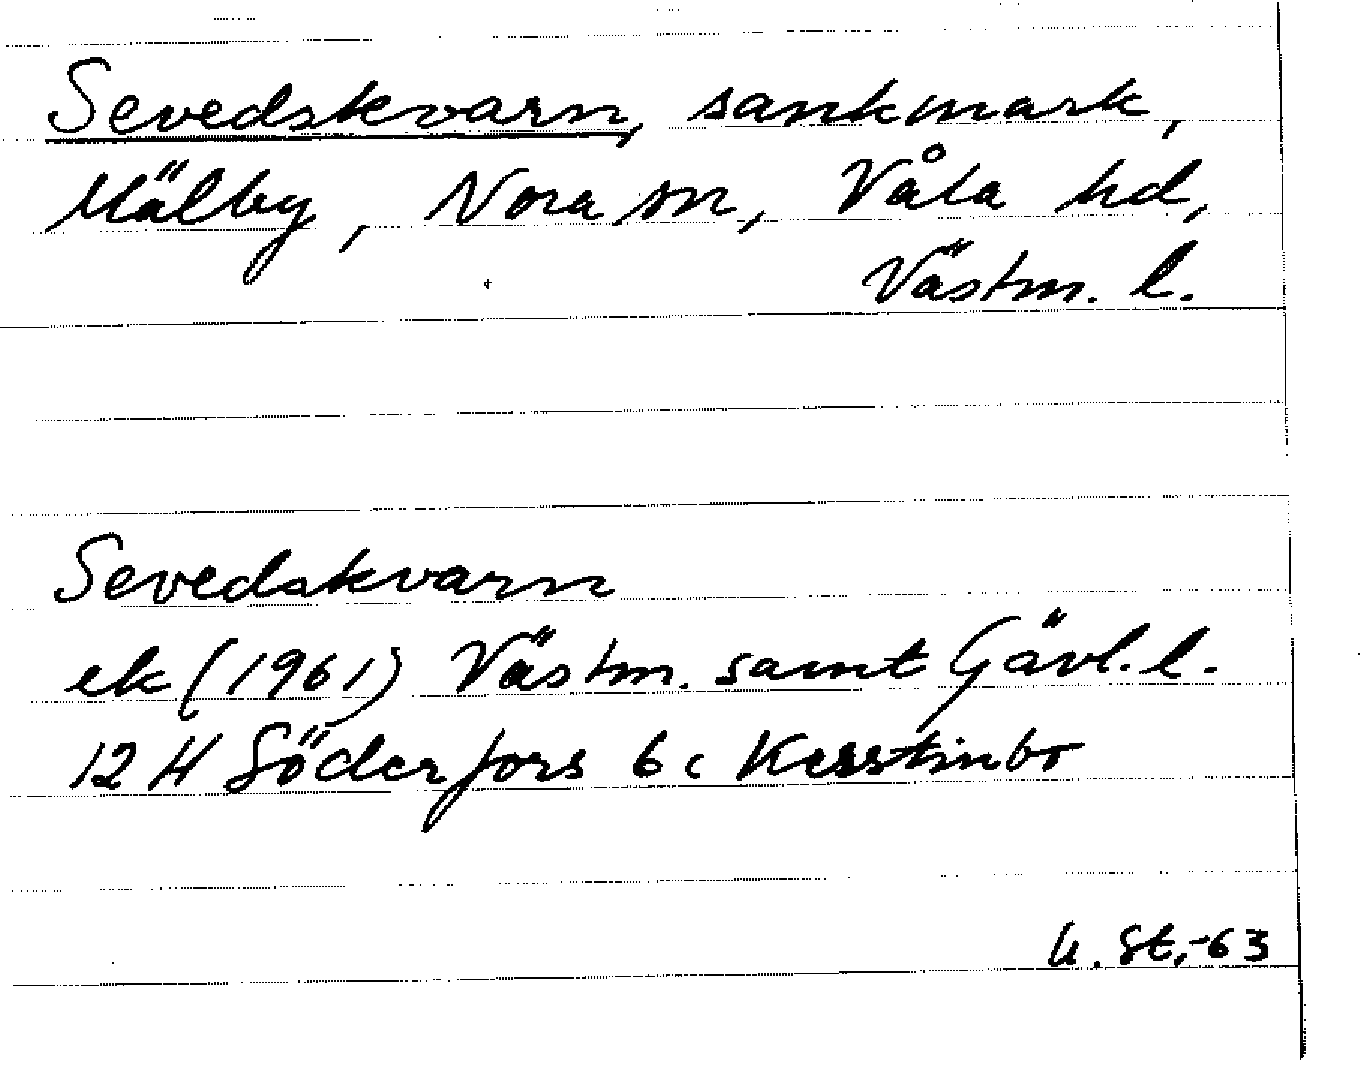 Sevedskvarn, sankmark,
Mälby, Nora sn, Våla hd,
Västm. l.
Sevedskvarn
ek (1961) Västm. samt Gävl. l.
12 H Söderfors 6 c Kerstinbo
U. St, -63